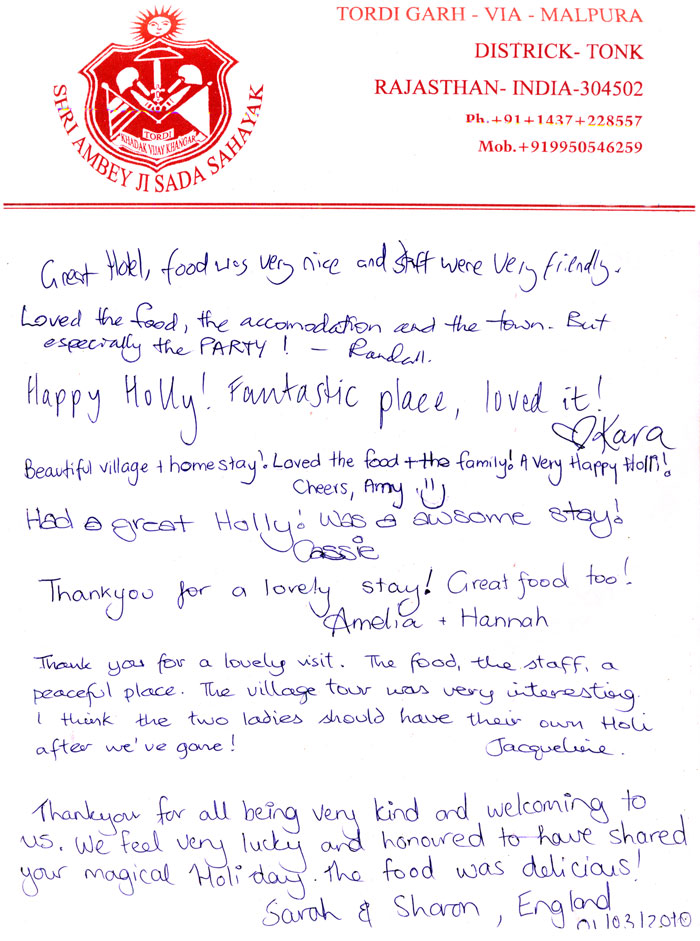 TORDI GARH - VIA - MALPURA
DISTRICK- TONK
RAJASTHAN- INDIA-304502
Ph.+91+1437+228557
Mob.+919950546259
SHRI AMBEY JI SADA SAHAYAK
TORDI
KHADAK VIJAY KHANGAR
Great Hotel, food was very nice and staff were very friendly.
Loved the food, the accomodation and the town. But
especially the PARTY! - Randall.
Happy Holly! Fantastic place, loved it!
Kara
Beautiful village + homestay! Loved the food + the family! A very Happy Holi!
Cheers, Amy
Had a great Holly! Was a awsome stay!
Cassie
Thankyou for a lovely stay! Great food too!
Amelia + Hannah
Thank you for a lovely visit. The food, the staff, a
peaceful place. The village tour was very interesting.
I think the two ladies should have their own Holi
after we've gone! Jacqueline.
Thankyou for all being very kind and welcoming to
us. We feel very lucky and honoured to have shared
your magical Holi day. The food was delicious!
Sarah & Sharon, England
01/03/2010